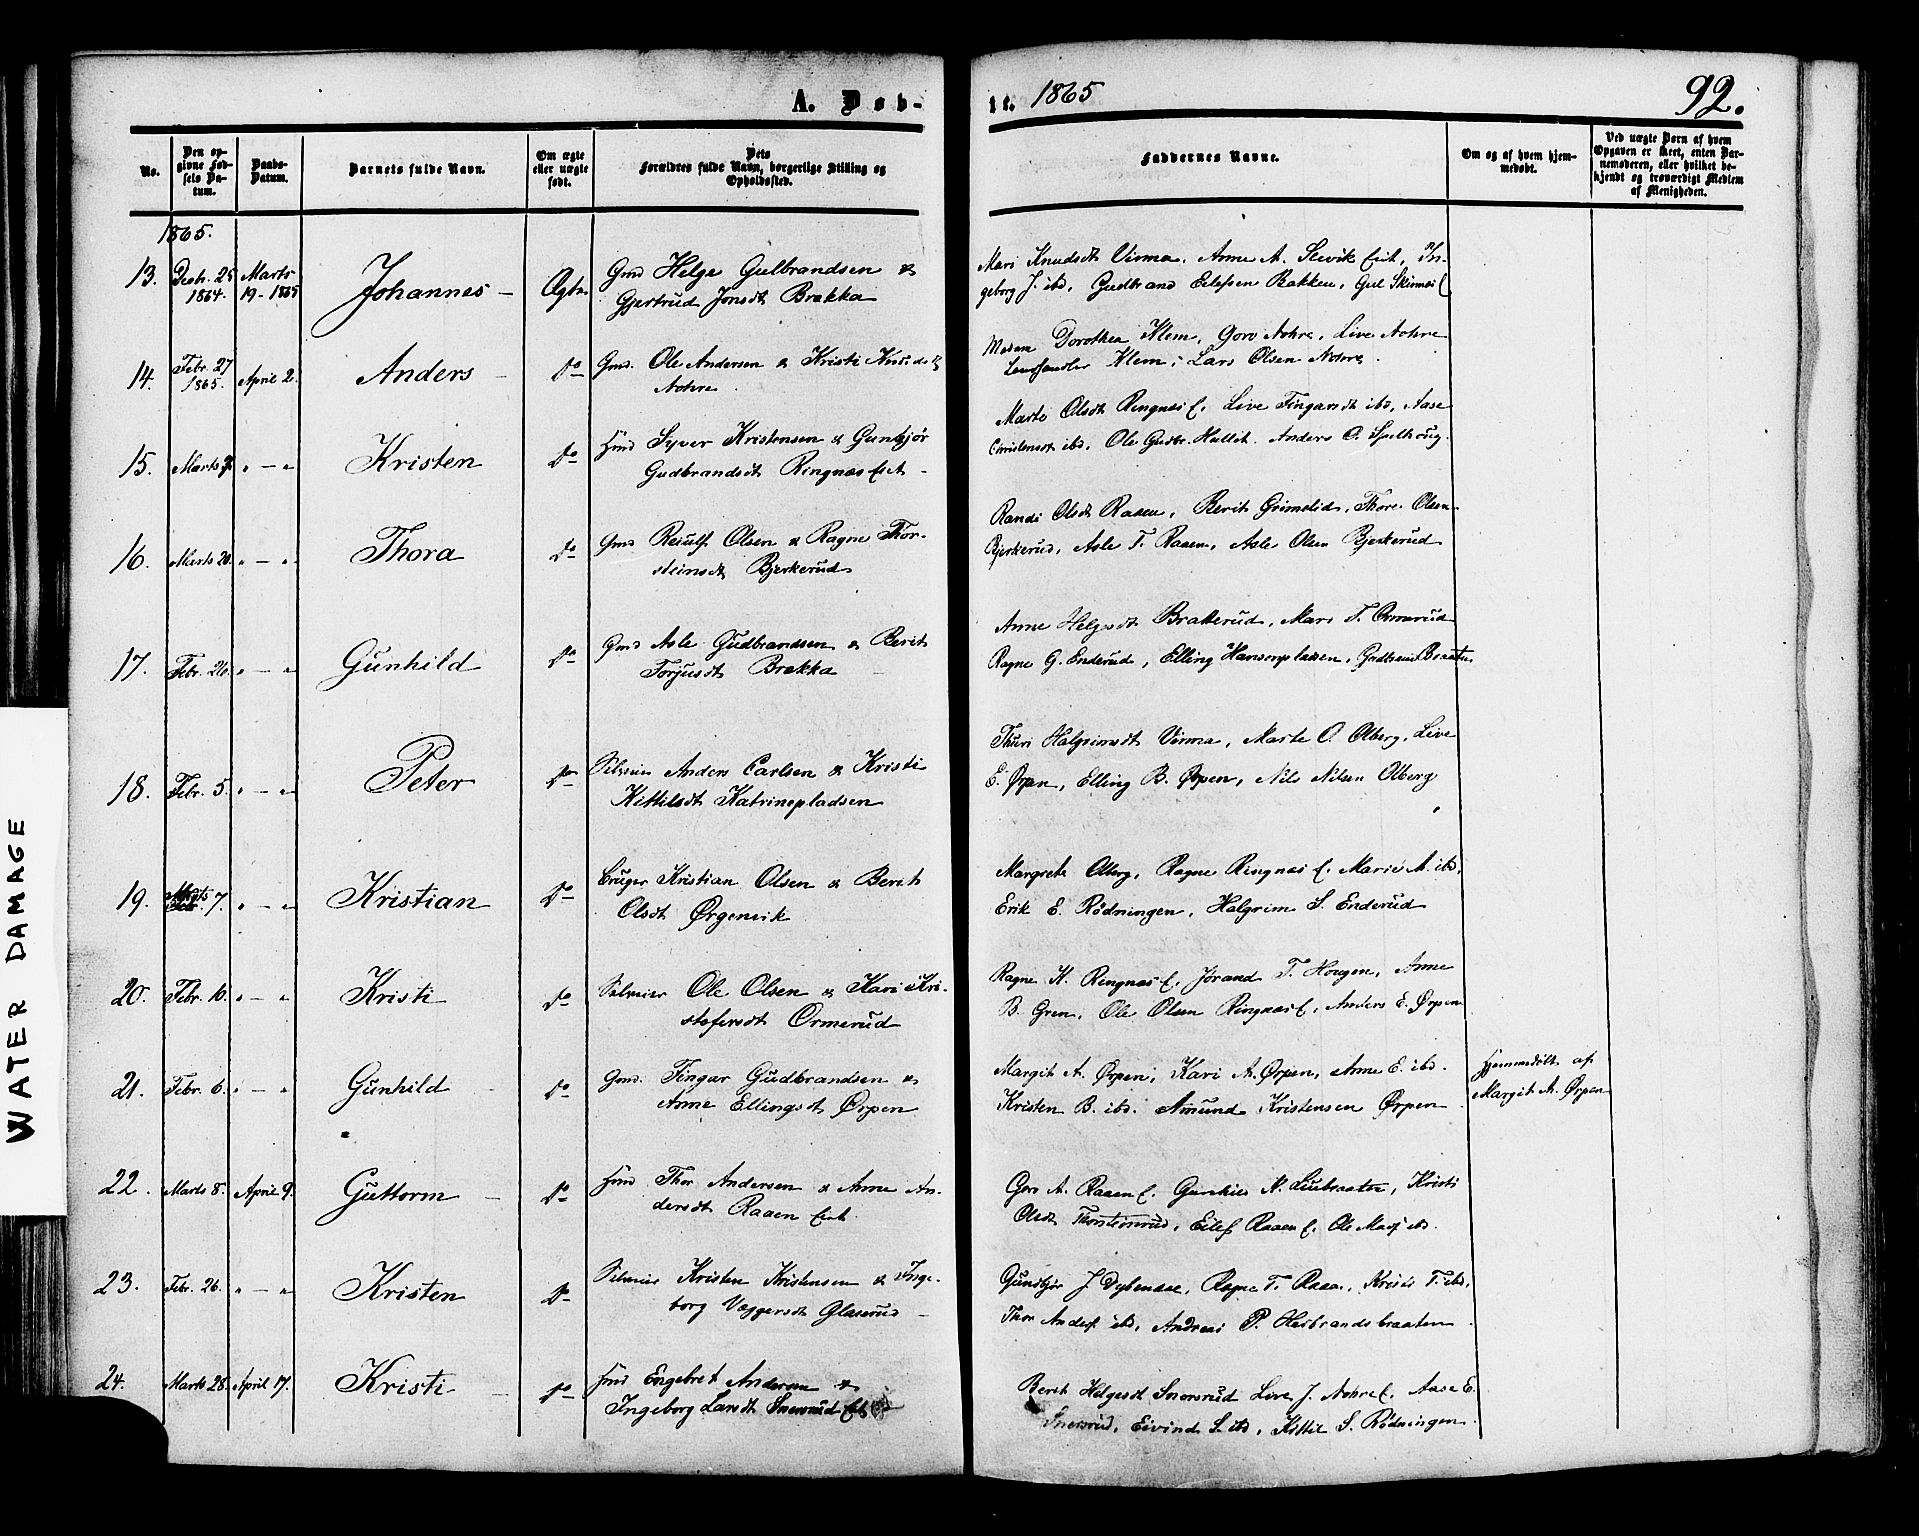 A. Døb-
te. 1865
92.
No.
Den op-
givne Fød-
sels Da-
tum.
Daabs-
Datum.
Barnets fulde Navn.
Om ægte
eller uægte
født.
Dets
Forældres fulde Navn, borgerlige Stilling og
Opholdssted.
Faddernes Navne.
Om og af hvem hjem-
medøbt.
Ved uægte Børn af hvem
Opgaven er skeet, enten Bar-
nemoderen, eller hvilket be-
kjendt og troværdigt Medlem
af Menigheden.
1865.
13. Decbr. 25 1864. Marts 19 - 1865 Johannes - Ægte Gmd Helge Gulbrandsen &
Gjertrud Jonsdt Brakka
Mari Knudsdt Virma, Anne A. Slevik Eiet, In-
geborg J. ibd, Gudbrand Eilefsen Bakken, Gul Skinnes E
14. Febr. 27 1865. April 2. Anders - Do Gmd. Ole Andersen & Kristi Knudsdt
Nohre.
Madam Dorothea Klem, Goro Nohre, Live Nohre
Landhandler Klem, Lars Olsen Nohre.
15. Marts 7. " - " Kristen Do Hmd Syver Kristensen & Gunbjør
Gudbrandsdt Ringnæs Eiet -
Marte Olsdt Ringnæs E. Live Fingarsdt ibd, Aase
Christensdt ibd, Ole Gudbr. Hallit. Anders O. Spelhoug.
16. Marts 20. " - " Thora Do Gmd Reiulf Olsen & Ragne Thor-
steinsdt Bjerkerud
Randi Olsdt Raaen, Berit Grimelid, Thore Olsen
Bjerkerud, Asle T. Raaen, Asle Olsen Bjerkerud
17. Febr. 26. " - " Gunhild Do Gmd Asle Gudbrandsen & Berit
Torjusdt Brakka -
Anne Helgesdt Brakkerud, Mari T. Ormerud
Ragne G. Enderud, Elling Hansenpladsen, Gudbrand Braaten
18. Febr. 5. " - " Peter Do Selveier Anders Carlsen & Kristi
Kittilsdt Katrinepladsen
Thuri Halgrimsdt Virma, Marte O. Olberg, Live
E. Ørpen, Elling B. Ørpen, Nils Nilsen Olberg
19. Marts 7. " - " Kristian Do Bruger Kristian Olsen & Berit
Olsdt Ørgenvik
Margrete Olberg, Ragne Ringnæs E. Marie A. ibd,
Erik E. Rødningen, Halgrim S. Enderud
20. Febr. 10. " - " Kristi Do Selveier Ole Olsen & Kari Kri-
stofersdt Ormerud
Ragne K. Ringnæs E, Jørand T. Hougen, Anne
B. Gren, Ole Olsen Ringnæs E, Anders E. Ørpen
21. Febr. 6. " - " Gunhild Do Gmd. Fingar Gudbrandsen &
Anne Ellingsdt Ørpen
Margit A. Ørpen, Kari A. Ørpen, Anne E. ibd.
Kristen B. ibd. Amund Kristensen Ørpen
Hjemmedøbt af
Margit A. Ørpen
22. Marts 8. April 9. Guttorm - Do Hmd Thor Andersen & Anne An-
dersdt Raaen Eiet.
Goro A. Raaen E. Gunhild N. Liebraaten, Kristi
Olsdt Thorsteinrud, Eilef Raaen E. Ole ibd.
23. Febr. 26. " - " Kristen Do Selveier Kristen Kristensen & Inge-
borg Veggersdt Glaserud -
Gunbjør J Dybendal, Ragne T. Raaen, Kristi T. ibd,
Thor Anders. ibd, Andreas P. Heibrandsbraaten
24. Marts 28. April 17. Kristi - Do Hmd Engebret Andersen &
Ingeborg Larsdt Snersrud Eiet
Berit Helgesdt Snersrud Live J. Nohre E. Aase E.
Snersrud, Eivind S. ibd, Kittil S. Rødningen
WATER DAMAGE